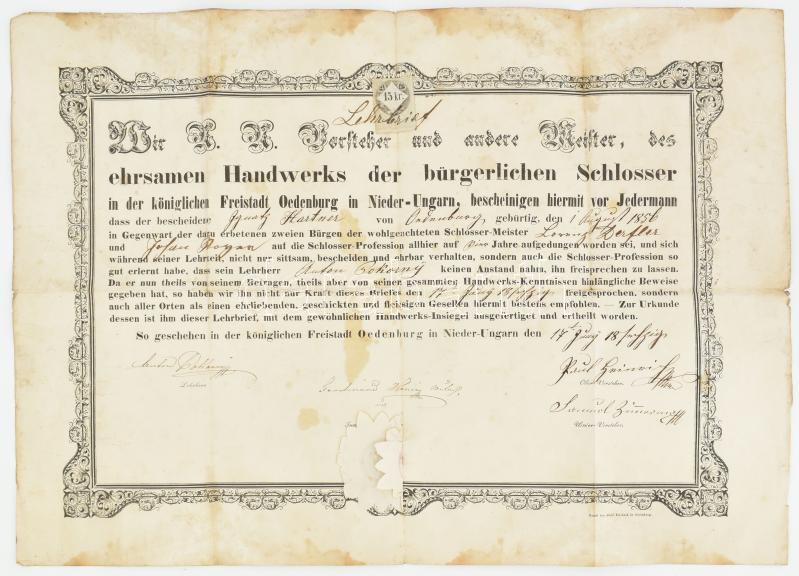 15 kr.
Lehrbrief
Wir K. K. Vorsteher und andere Meister, des
ehrsamen Handwerks der bürgerlichen Schlosser
in der königlichen Freistadt Oedenburg in Nieder-Ungarn, bescheinigen hiermit vor Jedermann
dass der bescheidene Ignatz Hartner von Oedenburg, gebürtig, den 1 August 1856
in Gegenwart der dazu erbetenen zweien Bürgen der wohlgeachteten Schlosser-Meister Lorenz
und auf die Schlosser-Profession allhier auf Jahre aufgedungen worden sei, und sich
während seiner Lehrzeit, nicht nur sittsam, bescheiden und ehrbar verhalten, sondern auch die Schlosser-Profession so
gut erlernt habe, dass sein Lehrherr Anton Pokorny keinen Anstand nahm, ihn freisprechen zu lassen.
Da er nun theils von seinem Betragen, theils aber von seiner gesammten Handwerks-Kenntnissen hinlängliche Beweise
gegeben hat, so haben wir ihn nicht nur Kraft dieses Briefes den freigesprochen, sondern
auch aller Orten als einen ehrliebenden, geschickten und fleisigen Gesellen hiermit bestens empfohlen. — Zur Urkunde
dessen ist ihm dieser Lehrbrief, mit dem gewöhnlichen Handwerks-Insiegel ausgefertiget und ertheilt worden.
So geschehen in der königlichen Freistadt Oedenburg in Nieder-Ungarn den 17 Juny 18 sechzig
Anton Pokorny
Lehrherr.
Paul Heinrich
Ober-Vorsteher.
Ferdinand
Samuel Zimmermann
Unter-Vorsteher.